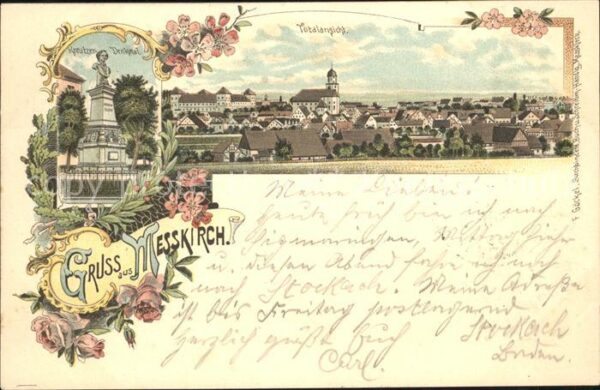 Kreutzer-Denkmal.
Totalansicht.
GRUSS aus MESSKIRCH.
Meine Lieben!
Heute früh bin ich nach
Sigmaringen, Mittag hier
u. diesen Abend fahre ich noch
nach Stockach. Meine Adresse
ist bis Freitag postlagernd
herzlich grüßt Euch Stockach
Carl. Baden.